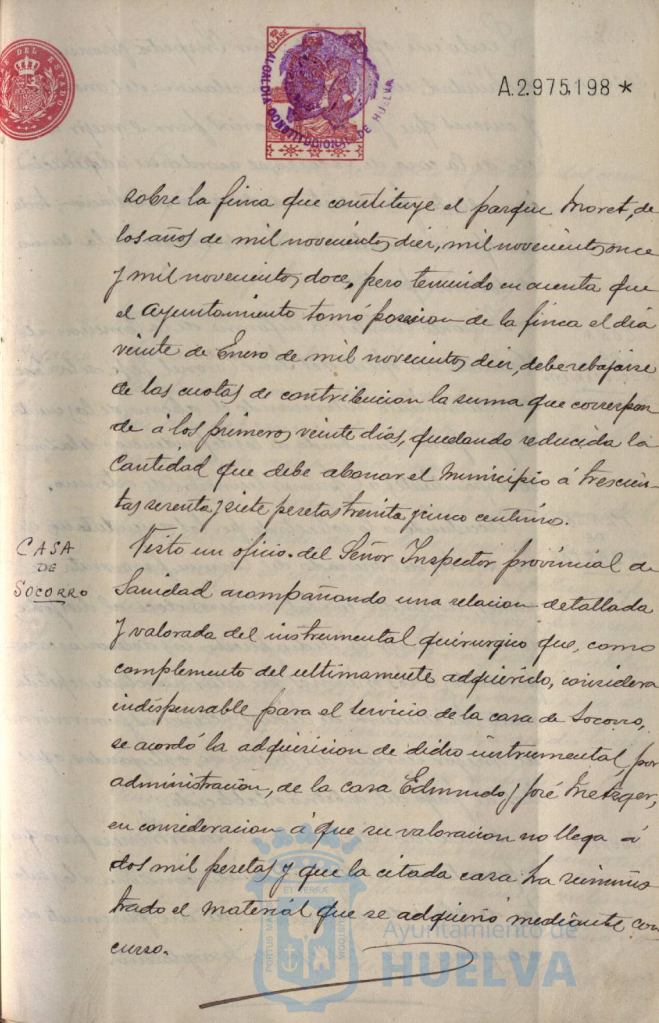 DEL ESTADO
12ª CLASE
ALCALDIA CONSTITUCIONAL DE HUELVA
A.2.975,198 *
sobre la finca que constituye el parque Moret, de
los años de mil novecientos diez, mil novecientos once
y mil novecientos doce, pero teniendo en cuenta que
el Ayuntamiento tomó posesion de la finca el dia
veinte de Enero de mil novecientos diez, debe rebajarse
de las cuotas de contribucion la suma que correspon
de á los primeros veinte dias, quedando reducida la
cantidad que debe abonar el Municipio á trescien-
tas sesenta y siete pesetas treinta y cinco centimos.
CASA
DE
SOCORRO
Visto un oficio del Señor Inspector provincial de
Sanidad acompañando una relacion detallada
y valorada del instrumental quirurgico que, como
complemento del ultimamente adquirido, considera
indispensable para el servicio de la casa de Socorro,
se acordó la adquisicion de dicho instrumental, por
administración, de la casa Edmundo y José Metzger,
en consideracion á que su valoracion no llega á
dos mil pesetas y que la citada casa ha suminis
trado el material que se adquirió mediante con
curso.
Ayuntamiento de
HUELVA